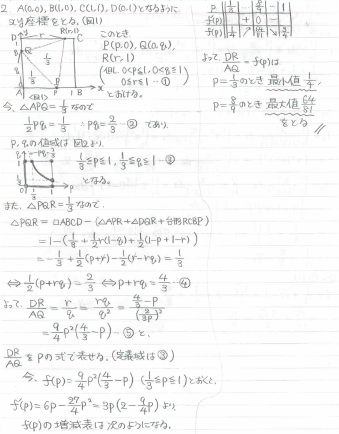 2 A(0,0), B(1,0), C(1,1), D(0,1)となるように
xy座標をとる。(図1)
y
D
R(r,1)
C
1
Q
1/3
1/3
A
P
1
B
x
(図1)
このとき
P(p,0), Q(0,q),
R(r,1)
(但し 0<p≦1, 0<q≦1
0≦r≦1 …①)
とおける。
今、△APQ=1/3なので
1/2pq=1/3 ∴pq=2/3 …② であり、
p,qの値域は図2より
q
pq=2/3
1
p
1/3≦p≦1, 1/3≦q≦1 …③
となる。
また、△PQR=1/3なので、
△PQR = □ABCD-(△APR+△DQR+台形RCBP)
=1-(1/3+1/2r(1-q)+1/2(1-p+1-r))
=-1/3+1/2(p+r)-1/2(r-rq)=1/3
⇔1/2(p+rq)=2/3 ⇔p+rq=4/3 …④
よって DR/AQ=r/q=rq/q²=(4/3-p)/(2/3p)²
=9/4p²(4/3-p) …⑤ と、
DR/AQ をpの式で表せる。(定義域は③)
今、f(p)=9/4p²(4/3-p) (1/3≦p≦1)とおくと、
f'(p)=6p-27/4p²=3p(2-9/4p) より
f(p)の増減表は次のようになる。
p 1/3 … 8/9 … 1
f'(p) + 0 -
f(p) 1/4 ↗ 64/81 ↘ 3/4
よって DR/AQ=f(p)は
p=1/3のとき 最小値 1/4,
p=8/9のとき 最大値 64/81
をとる